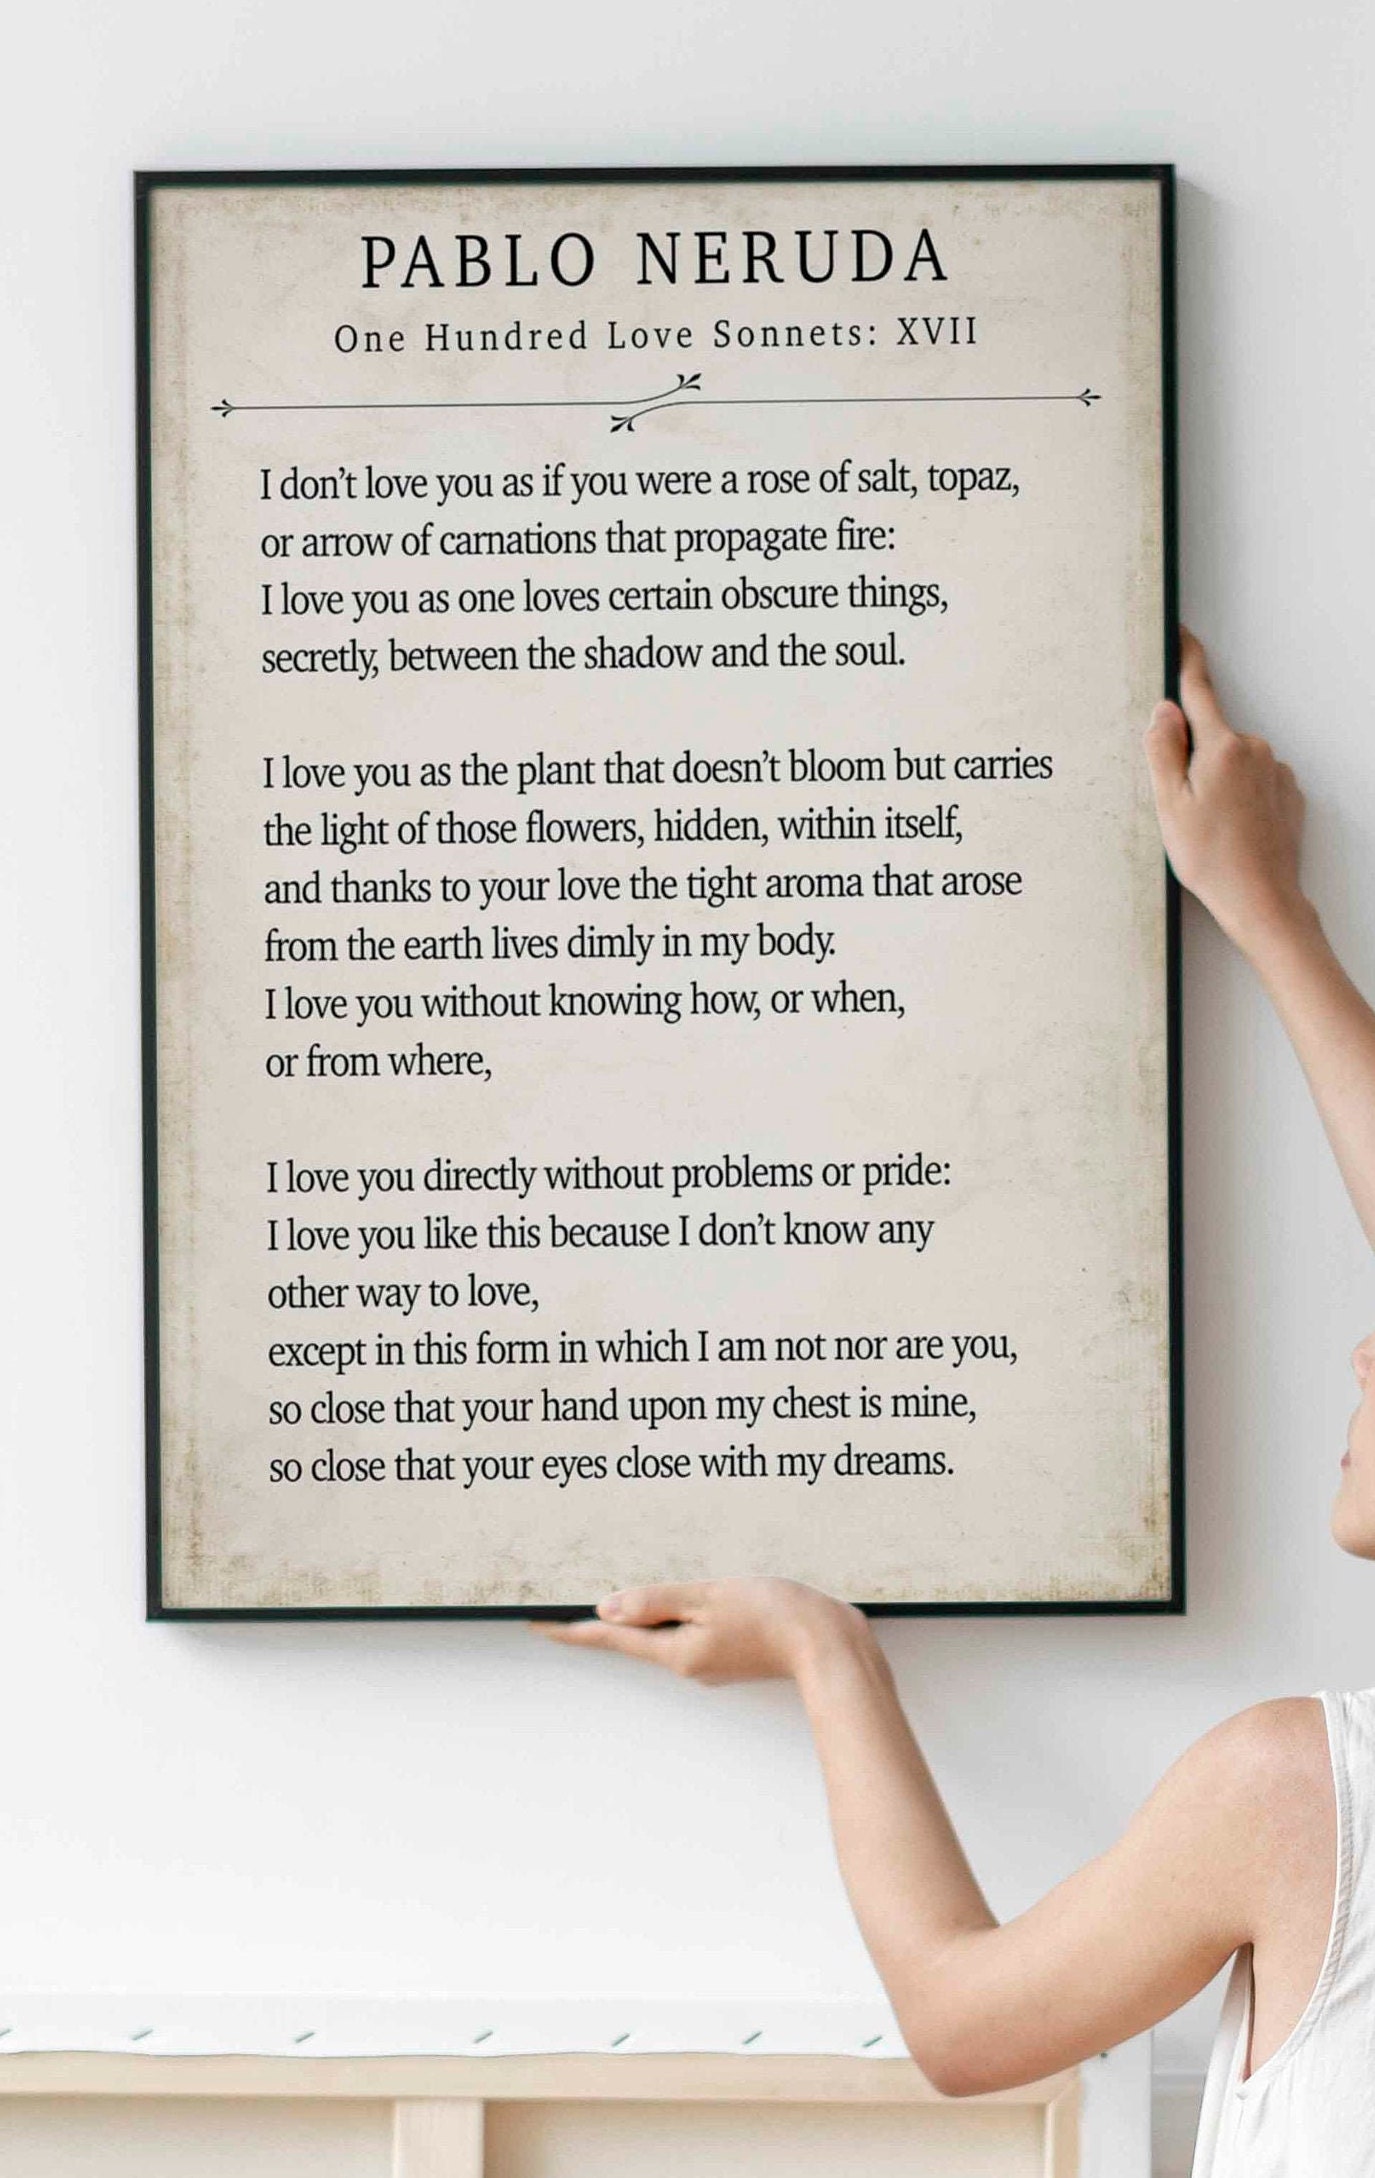 PABLO NERUDA
One Hundred Love Sonnets: XVII
I don’t love you as if you were a rose of salt, topaz,
or arrow of carnations that propagate fire:
I love you as one loves certain obscure things,
secretly, between the shadow and the soul.
I love you as the plant that doesn’t bloom but carries
the light of those flowers, hidden, within itself,
and thanks to your love the tight aroma that arose
from the earth lives dimly in my body.
I love you without knowing how, or when,
or from where,
I love you directly without problems or pride:
I love you like this because I don’t know any
other way to love,
except in this form in which I am not nor are you,
so close that your hand upon my chest is mine,
so close that your eyes close with my dreams.